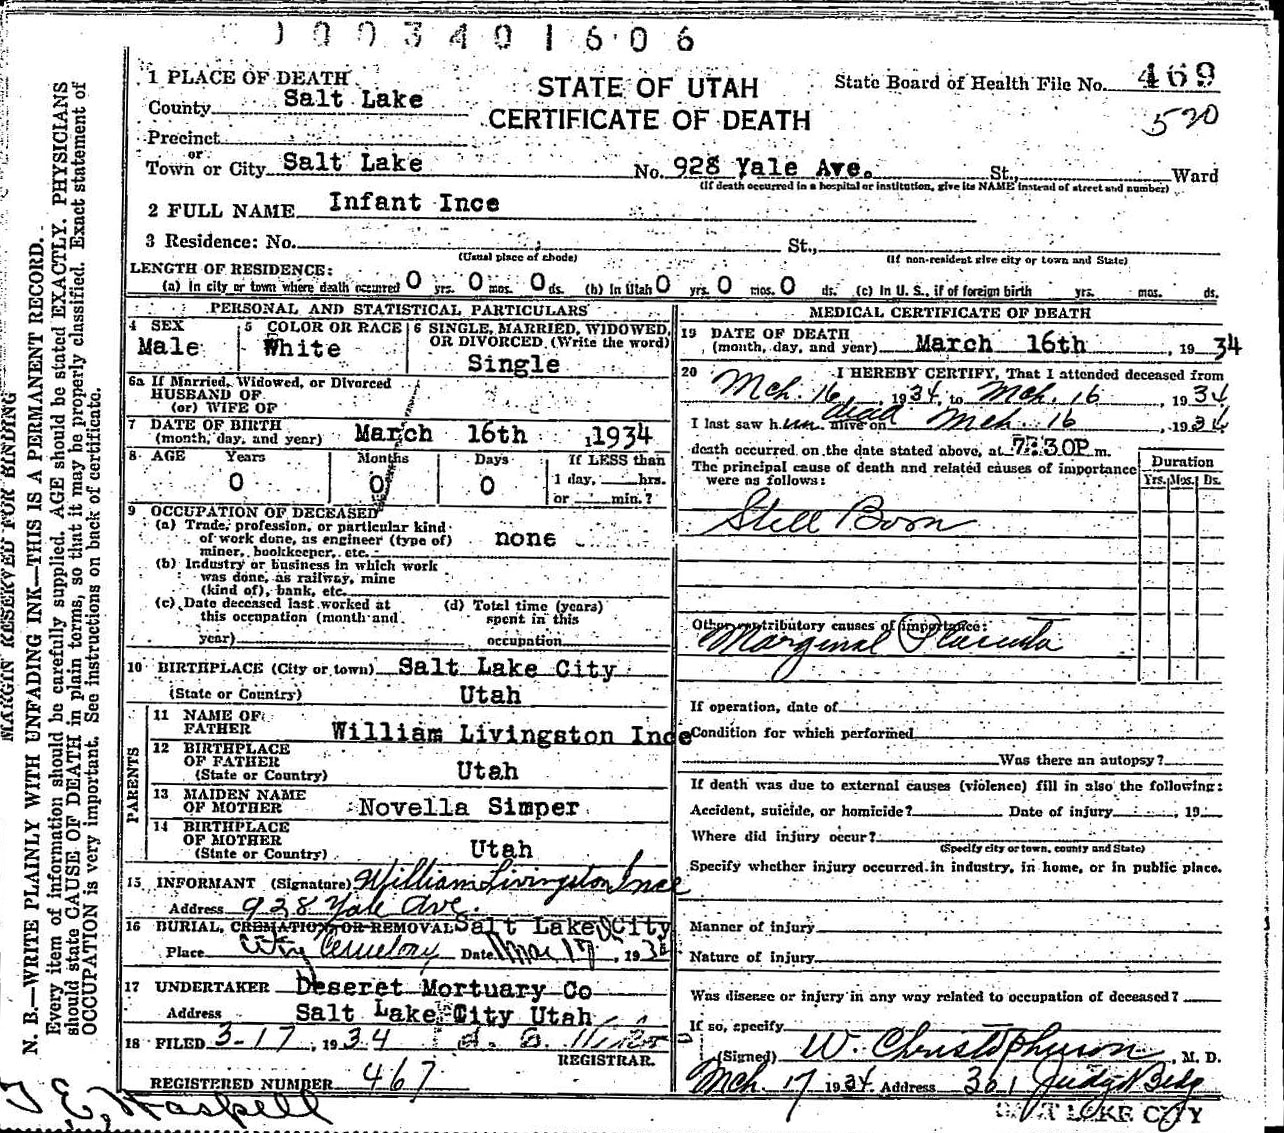 1003401606
1 PLACE OF DEATH
STATE OF UTAH
CERTIFICATE OF DEATH
State Board of Health File No. 469
520
County Salt Lake
Precinct
or
Town or City Salt Lake No. 928 Yale Ave. St., Ward
(If death occurred in a hospital or institution, give its NAME instead of street and number)
2 FULL NAME Infant Ince
3 Residence: No. St.,
(Usual place of abode) (If non-resident give city or town and State)
LENGTH OF RESIDENCE:
(a) In city or town where death occurred 0 yrs. 0 mos. 0 ds. (b) In Utah 0 yrs. 0 mos. 0 ds. (c) In U. S., if of foreign birth yrs. mos. ds.
PERSONAL AND STATISTICAL PARTICULARS
4 SEX Male
5 COLOR OR RACE White
6 SINGLE, MARRIED, WIDOWED, OR DIVORCED (Write the word)
Single
6a If Married, Widowed, or Divorced
HUSBAND OF
(or) WIFE OF
7 DATE OF BIRTH
(month, day, and year) March 16th, 1934
8 AGE Years Months Days If LESS than
0 0 0 1 day, hrs.
or min.?
9 OCCUPATION OF DECEASED
(a) Trade, profession, or particular kind
of work done, as engineer (type of) none
miner, bookkeeper, etc.
(b) Industry or business in which work
was done, as railway, mine
(kind of), bank, etc.
(c) Date deceased last worked at (d) Total time (years)
this occupation (month and spent in this
year) occupation
10 BIRTHPLACE (City or town) Salt Lake City
(State or Country) Utah
PARENTS
11 NAME OF
FATHER William Livingston Ince
12 BIRTHPLACE
OF FATHER
(State or Country) Utah
13 MAIDEN NAME
OF MOTHER Novella Simper
14 BIRTHPLACE
OF MOTHER
(State or Country) Utah
15 INFORMANT (Signature) William Livingston Ince
Address 928 Yale Ave.
16 BURIAL, CREMATION OR REMOVAL Salt Lake City
Place City Cemetery Date Mar 17, 1934
17 UNDERTAKER Deseret Mortuary Co
Address Salt Lake City Utah
18 FILED 3-17, 1934
REGISTRAR.
REGISTERED NUMBER 467
T. E. Haskell
MEDICAL CERTIFICATE OF DEATH
19 DATE OF DEATH
(month, day, and year) March 16th, 1934
20 I HEREBY CERTIFY, That I attended deceased from
Mch. 16, 1934, to Mch. 16, 1934
dead
I last saw him alive on Mch. 16, 1934
death occurred on the date stated above, at 7:30P m.
The principal cause of death and related causes of importance
were as follows:
Duration
Yrs. Mos. Ds.
Still Born
Other contributory causes of importance:
Marginal Placenta
If operation, date of
Condition for which performed
Was there an autopsy?
If death was due to external causes (violence) fill in also the following:
Accident, suicide, or homicide? Date of injury , 19
Where did injury occur?
(Specify city or town, county and State)
Specify whether injury occurred in industry, in home, or in public place.
Manner of injury
Nature of injury
Was disease or injury in any way related to occupation of deceased?
If so, specify
(Signed) W. Christopherson, M. D.
Mch. 17 1934 Address 301 Judge Bldg
SALT LAKE CITY
MARGIN RESERVED FOR BINDING
N. B.—WRITE PLAINLY WITH UNFADING INK—THIS IS A PERMANENT RECORD.
Every item of information should be carefully supplied. AGE should be stated EXACTLY. PHYSICIANS
should state CAUSE OF DEATH in plain terms, so that it may be properly classified. Exact statement of
OCCUPATION is very important. See instructions on back of certificate.